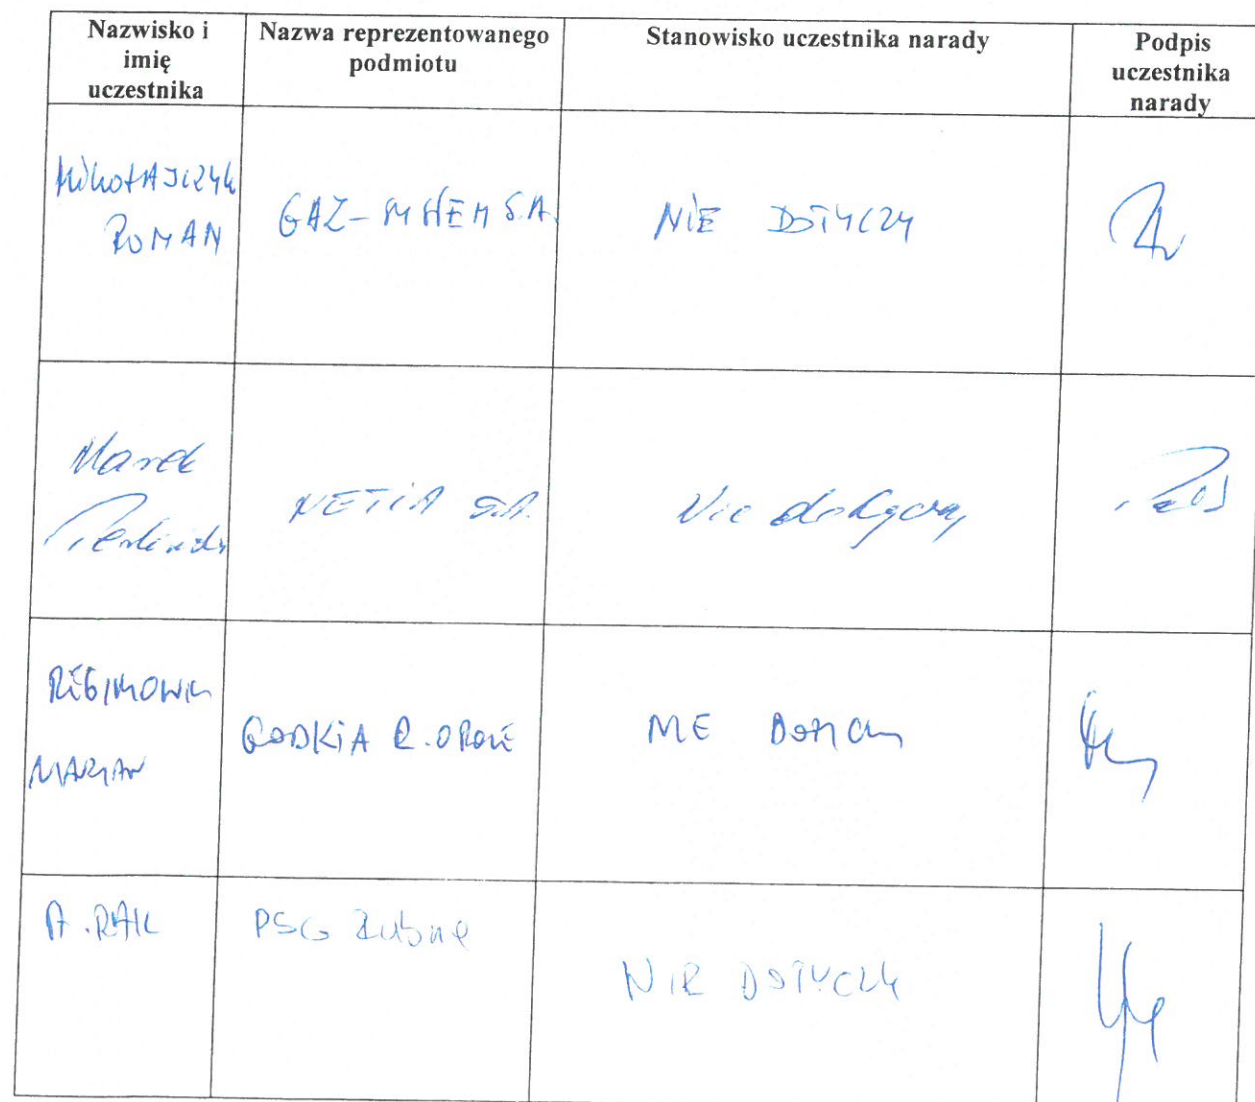 Nazwisko i
imię
uczestnika
Nazwa reprezentowanego
podmiotu
Stanowisko uczestnika narady
Podpis
uczestnika
narady
MIKOŁAJCZYK
ROMAN
GAZ-
S.A.
NIE DOTYCZY
Marek
NETIA S.A.
Nie dotyczy
MARIAN
NIE DOTYCZY
A. RAK
PSG
NIE DOTYCZY